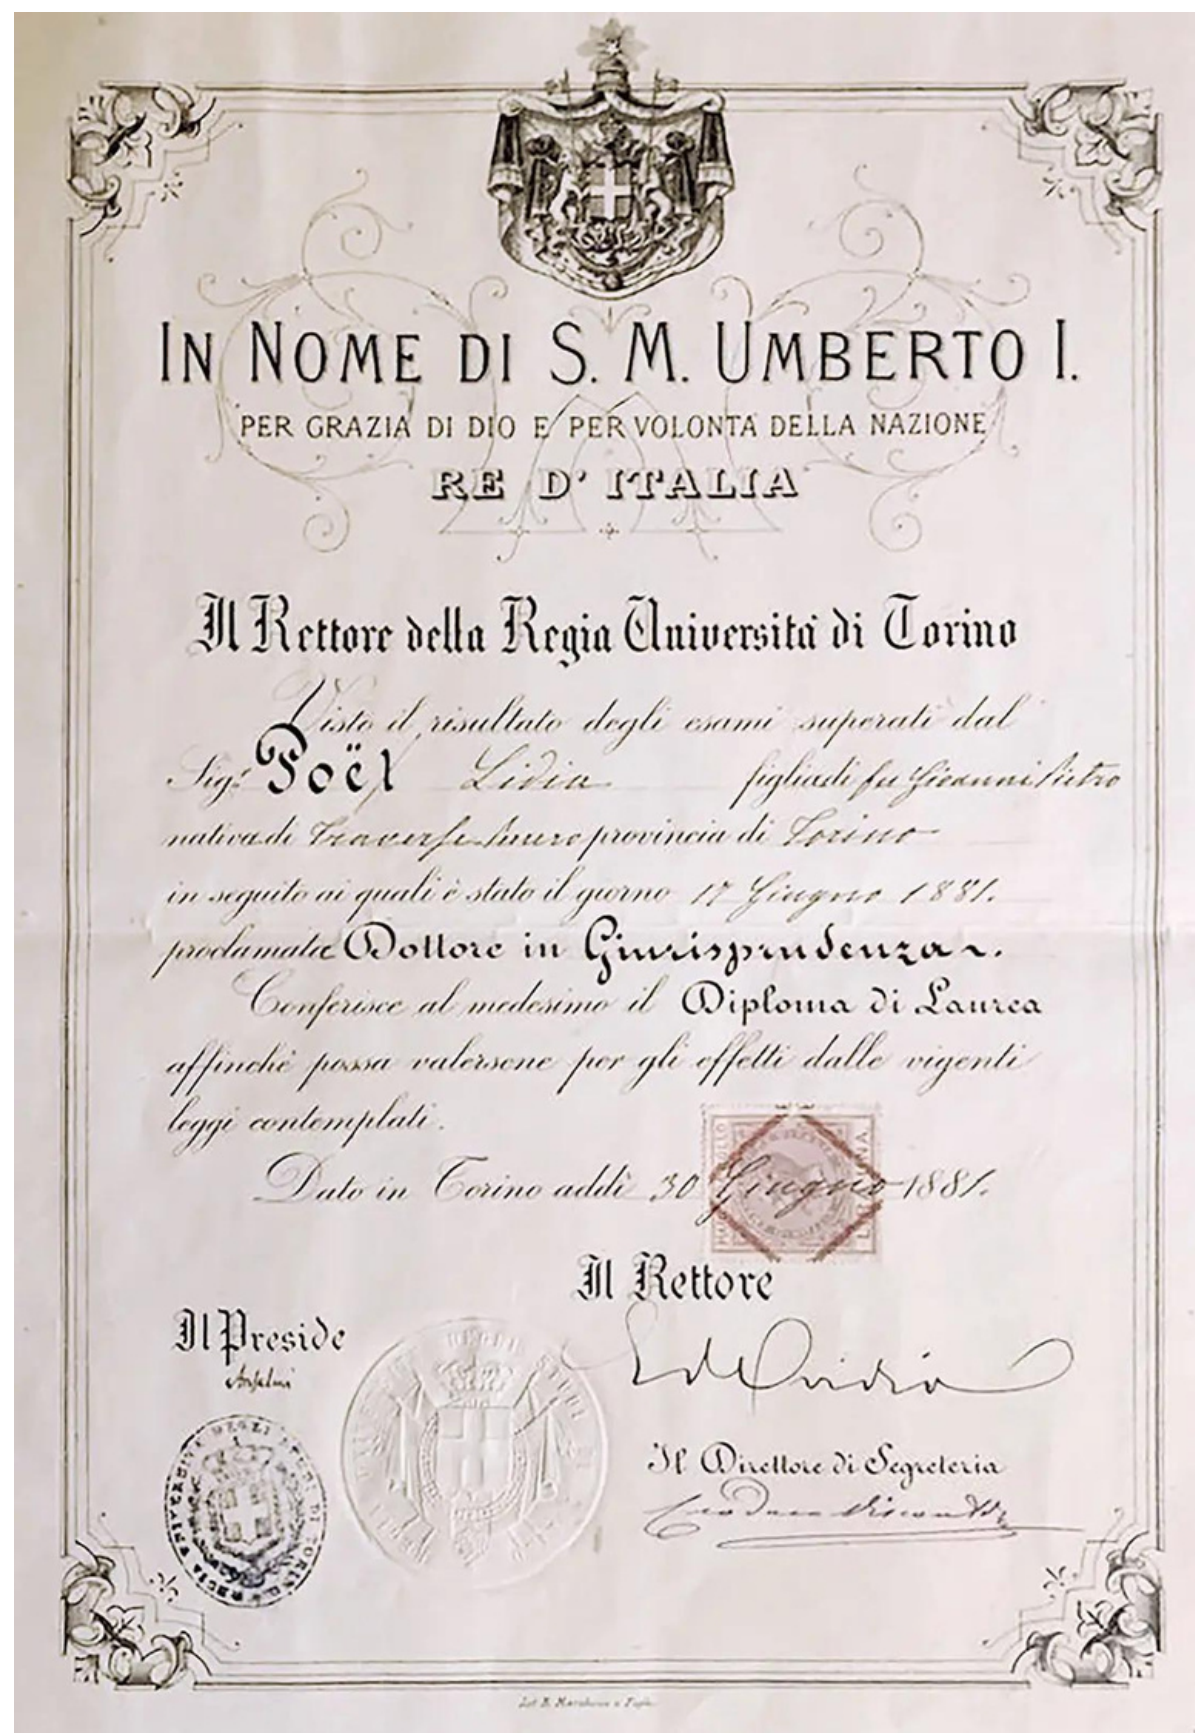 IN NOME DI S. M. UMBERTO I.
PER GRAZIA DI DIO E PER VOLONTÀ DELLA NAZIONE
RE D' ITALIA
Il Rettore della Regia Università di Torino
Visto il risultato degli esami superati dal
Sig.r Poët Lidia figlia di fu Giovanni Pietro
nativa di Traverse provincia di Torino
in seguito ai quali è stato il giorno 17 Giugno 1881.
proclamata Dottore in Giurisprudenza.
Conferisce al medesimo il Diploma di Laurea
affinchè possa valersene per gli effetti dalle vigenti
leggi contemplati.
Dato in Torino addì 30 Giugno 1881.
Il Rettore
Il Preside
Anselmi
Il Direttore di Segreteria
REGIA UNIVERSITÀ DEGLI STUDI DI TORINO